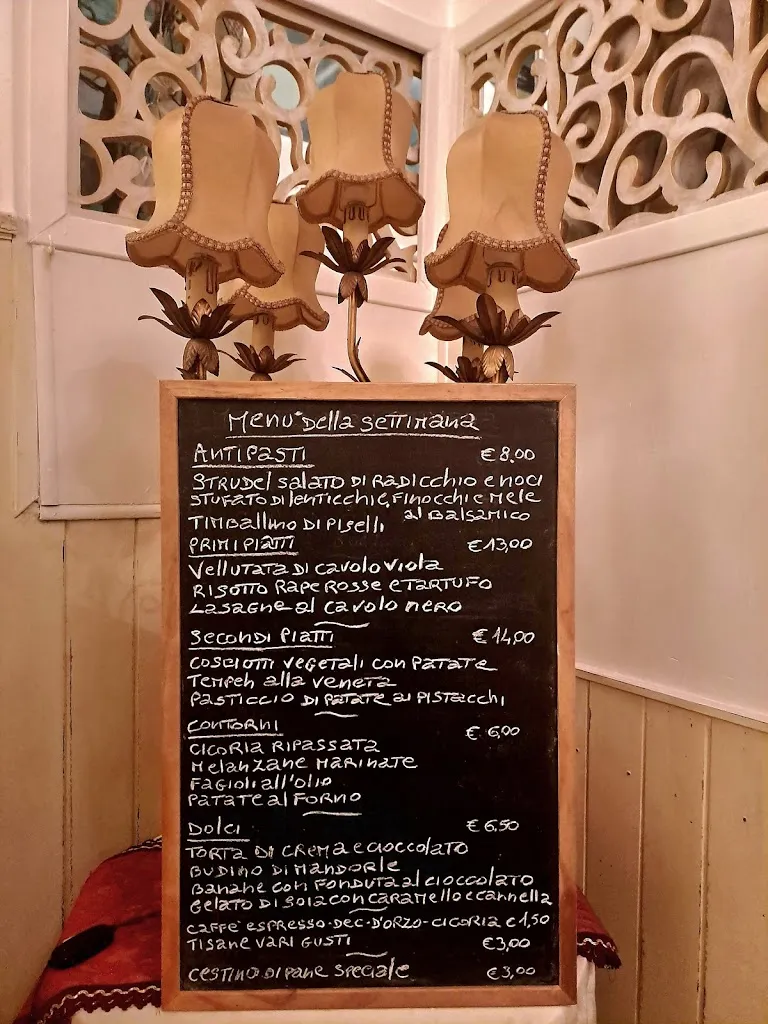 Menu Della Settimana
Antipasti € 8.00
Strudel salato di radicchio e noci
Stufato di lenticchie, finocchi e mele
al balsamico
Timballino di piselli
Primi Piatti € 13,00
Vellutata di cavolo viola
Risotto rape rosse e tartufo
Lasagne al cavolo nero
Secondi Piatti € 14,00
Cosciotti vegetali con patate
Tempeh alla veneta
Pasticcio di patate ai pistacchi
Contorni € 6,00
Cicoria ripassata
Melanzane marinate
Fagioli all'olio
Patate al forno
Dolci € 6,50
Torta di crema e cioccolato
Budino di mandorle
Banane con fonduta al cioccolato
Gelato di soia con caramello e cannella
Caffe' espresso - dec - d'orzo - cicoria € 1,50
Tisane vari gusti €3,00
Cestino di pane speciale €3,00